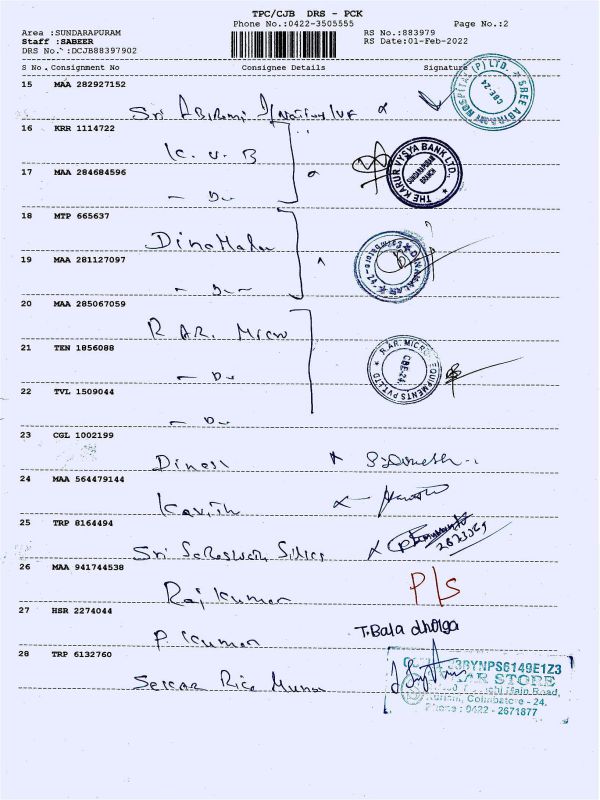 TPC/CJB DRS - PCK
Phone No.:0422-3505555 Page No.:2
Area :SUNDARAPURAM RS No.:883979
Staff :SABEER RS Date:01-Feb-2022
DRS No.:DCJB88397902
S No. Consignment No Consignee Details Signature
15 MAA 282927152
Sri Abirami
SREE ABIRAMI HOSPITAL (P) LTD. CBE-24
16 KRR 1114722
K. V. B
17 MAA 284684596
THE KARUR VYSYA BANK LTD. SUNDARAPURAM BRANCH
- Do -
18 MTP 665637
Dinamalar
19 MAA 281127097
DINAMALAR Coimbatore-24
- Do -
20 MAA 285067059
R. AR. Micro
21 TEN 1856088
R.AR. MICRO EQUIPMENTS PVT.LTD CBE-24.
- Do -
22 TVL 1509044
- Do -
23 CGL 1002199
Dinesh S. Dinesh
24 MAA 564479144
Kavith
25 TRP 8164494
Sri Saraswathi Silks
26 MAA 941744538
Rajkumar P/S
27 HSR 2274044
P. Kumar T. Bala dhurga
28 TRP 6132760
Sekar Rice Mundi
38YNPS6149E1Z3
KAR STORE
Main Road,
Coimbatore - 24.
Phone : 0422 - 2671877